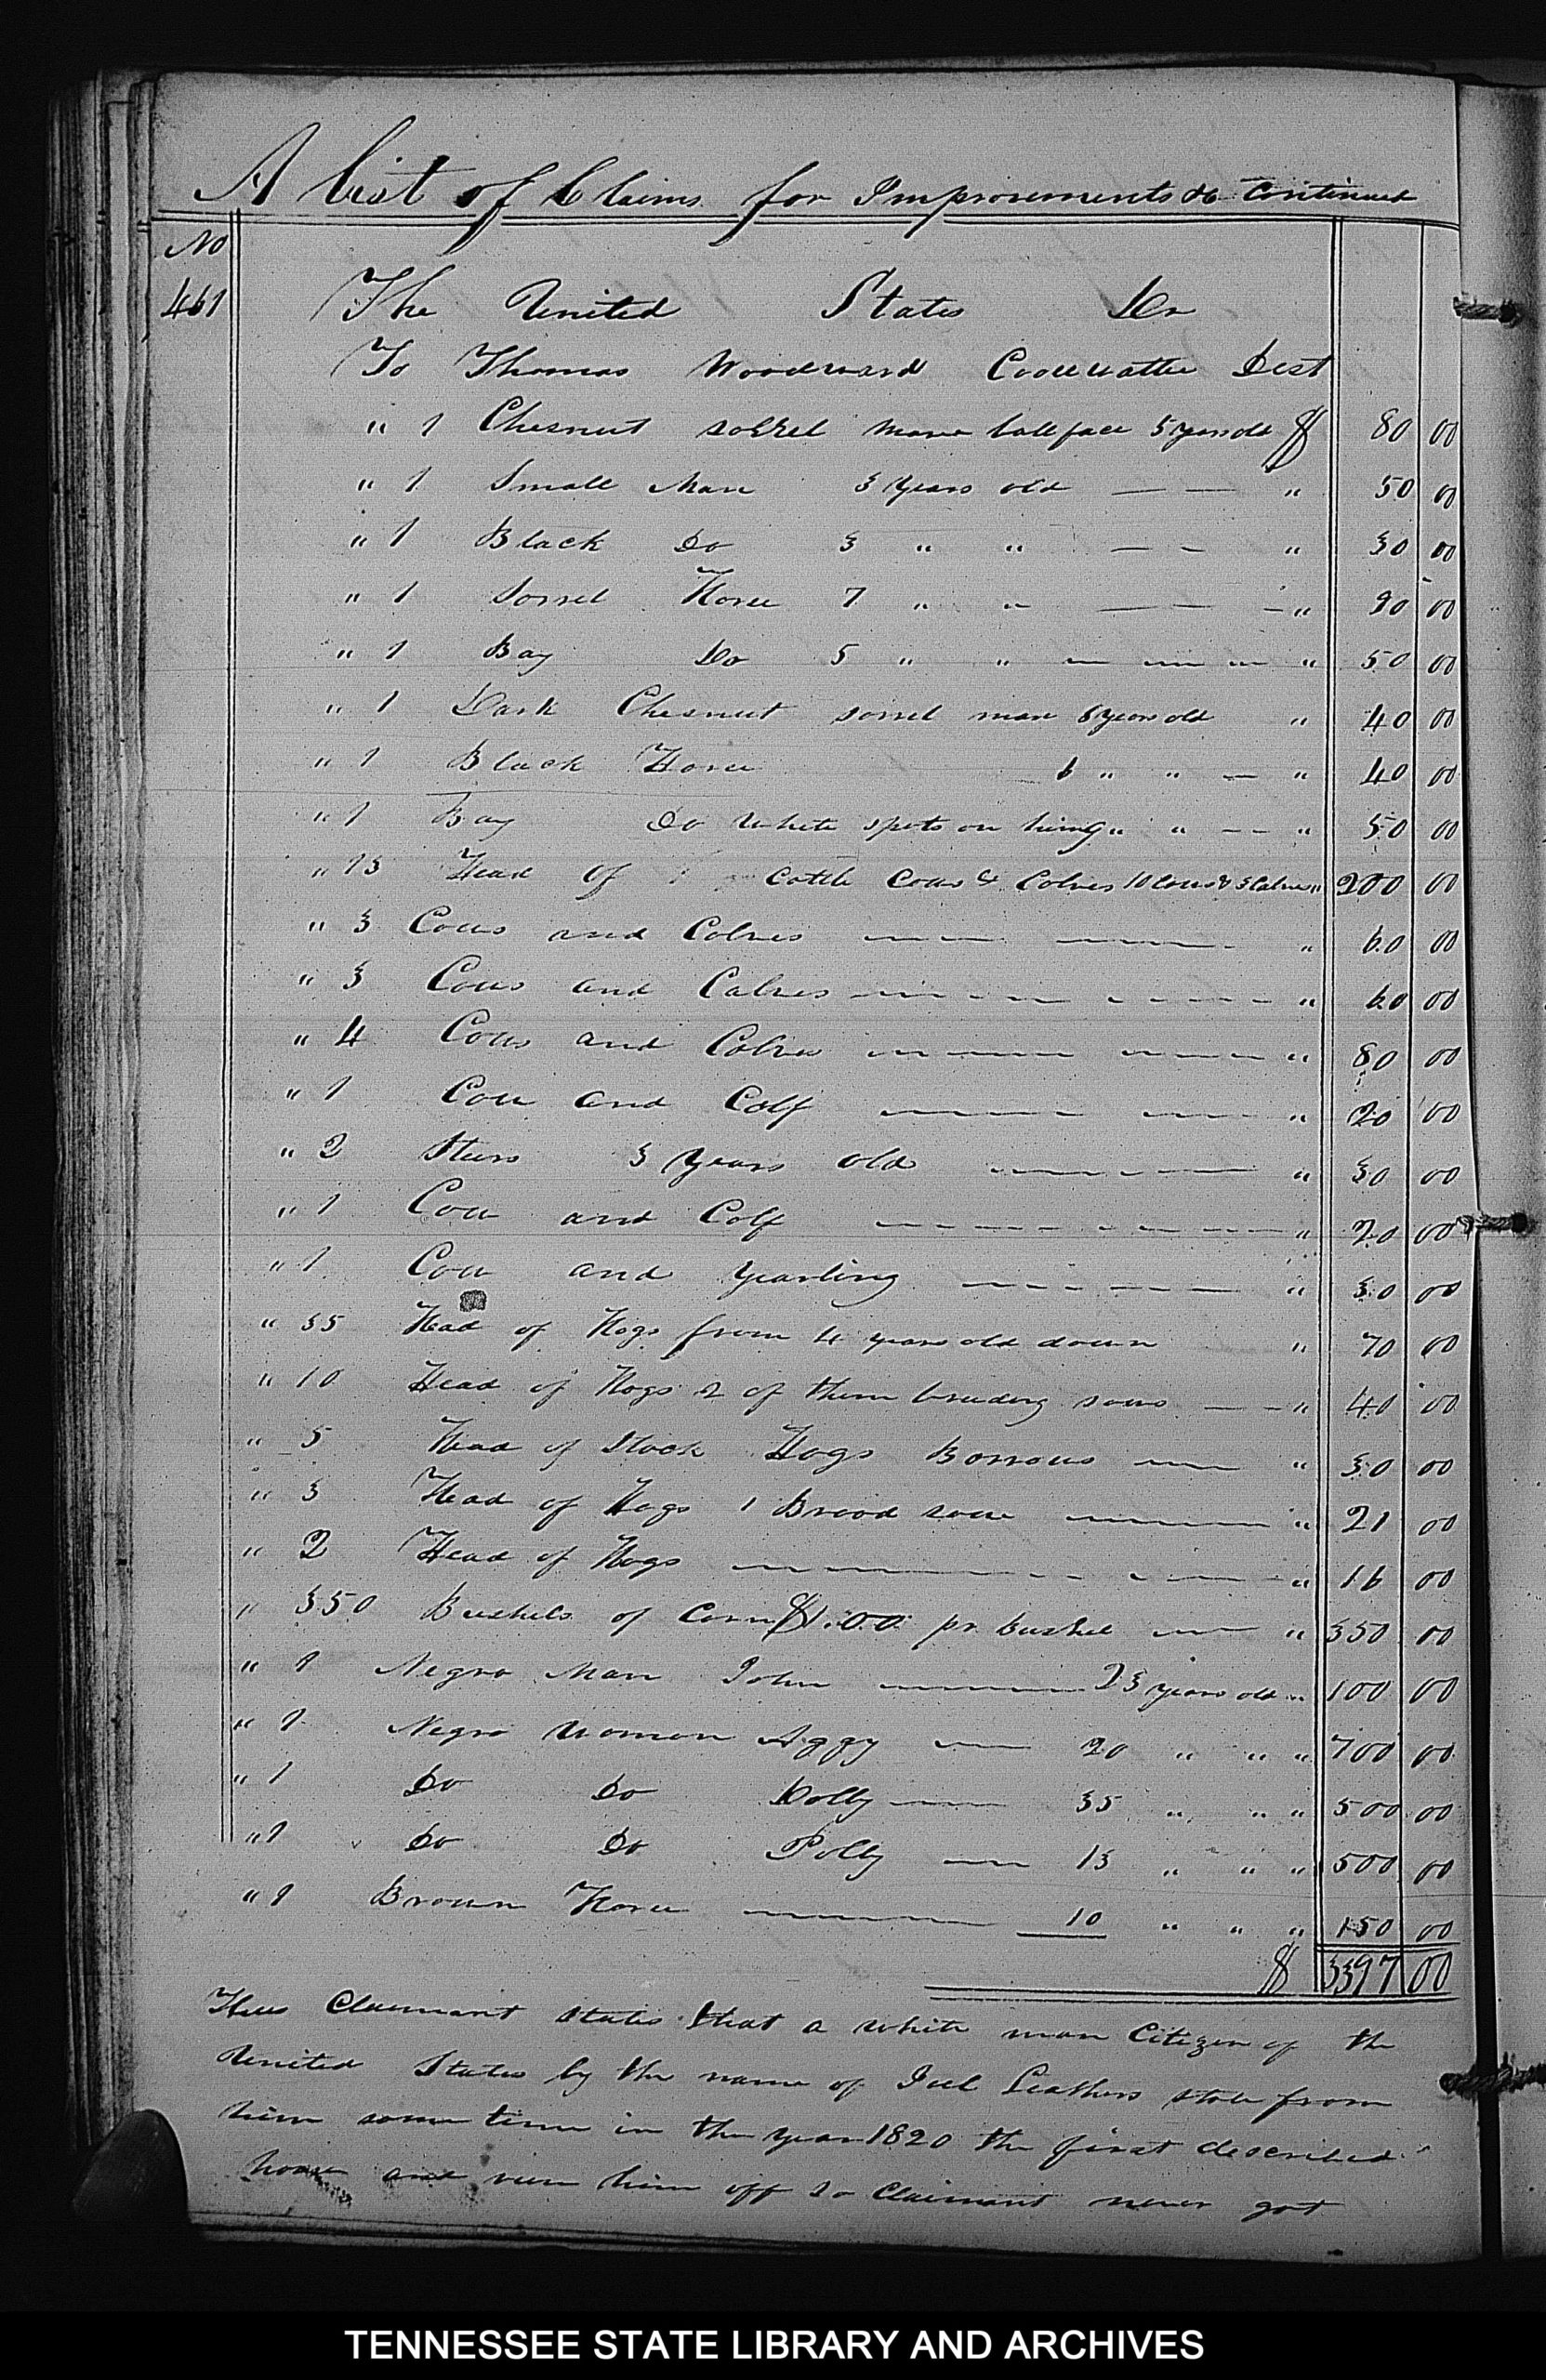 A List of Claims for Improvements &c Continued
No
461 The United States Dr
To Thomas Woodward Coosewattee Dist
" 1 Chesnut sorrel mare ball face 5 years old $ 80 00
" 1 Small Mare 3 years old — — " 50 00
" 1 Black Do 3 " " — — " 30 00
" 1 Sorrel Horse 7 " " — — — " 90 00
" 1 Bay Do 5 " " — — — " 50 00
" 1 Dark Chesnut sorrel mare 8 years old " 40 00
" 1 Black Horse 6 " " — " 40 00
" 1 Bay Do white spots on him 9 " " — — " 50 00
" 13 Head of Cattle Cows & Calves 10 Cows & 3 Calves " 200 00
" 3 Cows and Calves — — " 60 00
" 3 Cows and Calves — — " 60 00
" 4 Cows and Calves — — " 80 00
" 1 Cow and Calf — — " 20 00
" 2 Steers 3 years old — — " 30 00
" 1 Cow and Calf — — " 20 00
" 1 Cow and yearling — — " 30 00
" 35 Head of Hogs from 4 years old down " 70 00
" 10 Head of Hogs 2 of them breeding sows — — " 40 00
" 5 Head of Stock Hogs Borrows — " 30 00
" 3 Head of Hogs 1 Brood sow — " 21 00
" 2 Head of Hogs — — " 16 00
" 350 Bushels of Corn $1.00 pr bushel — " 350 00
" 1 Negro Man John — 23 years old " 100 00
" 1 Negro Woman Aggy — 20 " " " 700 00
" 1 Do Do Dolly — 35 " " " 500 00
" 1 Do Do Polly — 13 " " " 500 00
" 1 Brown Horse — 10 " " " 150 00
$ 3397 00
This Claimant states that a white man Citizen of the
United States by the name of Joel Leathers stole from
him some time in the year 1820 the first described
horse and run him off so Claimant never got
TENNESSEE STATE LIBRARY AND ARCHIVES